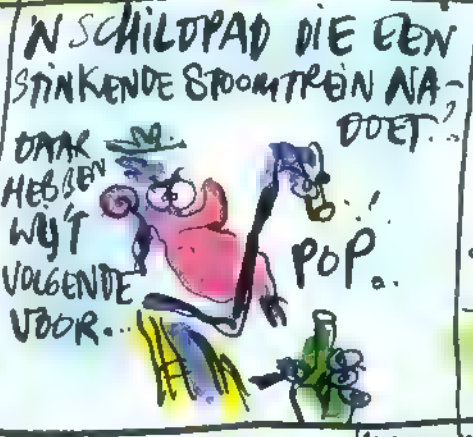 'N SCHILDPAD DIE EEN
STINKENDE STOOMTREIN NA-
DOET!
DAAR
HEBBEN
WIJ'T
VOLGENDE
VOOR...
POP..